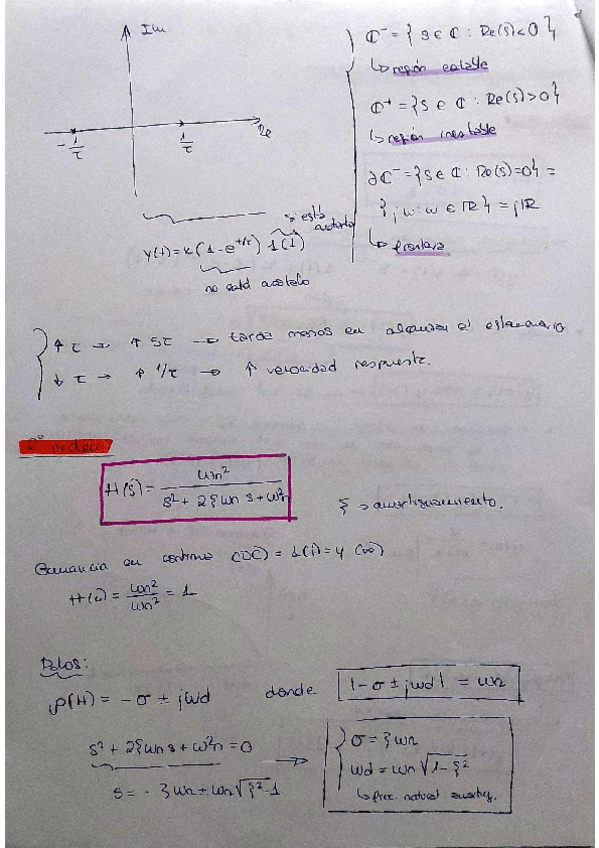 Im
ℂ⁻ = { s ∈ ℂ : Re(s) < 0 }
↳ región estable
ℂ⁺ = { s ∈ ℂ : Re(s) > 0 }
↳ región inestable
∂ℂ⁻ = { s ∈ ℂ : Re(s) = 0 } =
{ jw : w ∈ ℝ } = jℝ
↳ frontera
-1/τ
1/τ
Re
si está
acotado
y(t) = k(1 - e^{+t/τ}) 1(t)
no está acotado
↑ τ → ↑ 5τ → tarda menos en alcanzar el estacionario
↓ τ → ↑ 1/τ → ↑ velocidad respuesta.
2º orden:
H(s) = wn² / (s² + 2ξ wn s + w²n)
ξ → amortiguamiento.
Ganancia en continua (DC) =
H(0) = wn² / wn² = 1
Polos:
ρ(H) = -σ ± jwd donde |-σ ± jwd| = wn
s² + 2ξ wn s + w²n = 0 →
s = - ξ wn ± wn √(ξ² - 1)
σ = ξ wn
wd = wn √(1 - ξ²)
↳ frec. natural amortig.